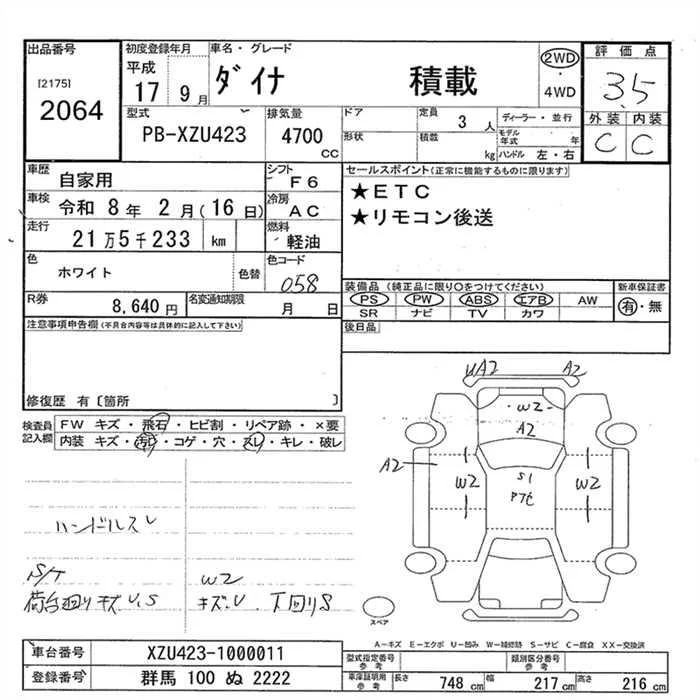 出品番号
[2175]
2064
初度登録年月
平成
17 9月
車名・グレード
ダイナ 積載
2WD
・
4WD
評価点
3.5
外装 内装
C C
型式
PB-XZU423
排気量
4700
CC
ドア
形状
定員
3人
積載
kg
ディーラー・並行
モデル年式 年
ハンドル 左・右
車歴
自家用
シフト
F6
車検
令和 8年 2月(16日)
冷房
AC
走行
21万5千233 km
燃料
軽油
色
ホワイト
色替
色コード
058
R券
8,640円
名変通知期限
月 日
セールスポイント(正常に機能するものに限ります)
★ETC
★リモコン後送
装備品(純正品に限り○をつけてください)
PS PW ABS エアB AW
SR ナビ TV カワ
新車保証書
有・無
後日品
注意事項申告欄(不具合内容等は具体的に記入して下さい)
修復歴 有〔箇所 〕
検査員
記入欄
FW キズ・飛石・ヒビ割・リペア跡・×要
内装 キズ・汚れ・コゲ・穴・スレ・キレ・破レ
ハンドルスレ
S/T
荷台回りキズU.S
W2
キズ.U. 下回りS
UA2 A2
W2
A2
A2
W2
S1
W2
スペア
A-キズ E-エクボ U-凹み W-補修跡 S-サビ C-腐食 XX-交換済
車台番号
XZU423-1000011
登録番号
群馬 100 ぬ 2222
型式指定番号
参考
類別区分番号
参考
車庫証明用
参考
長さ 748 cm
幅 217 cm
高さ 216 cm